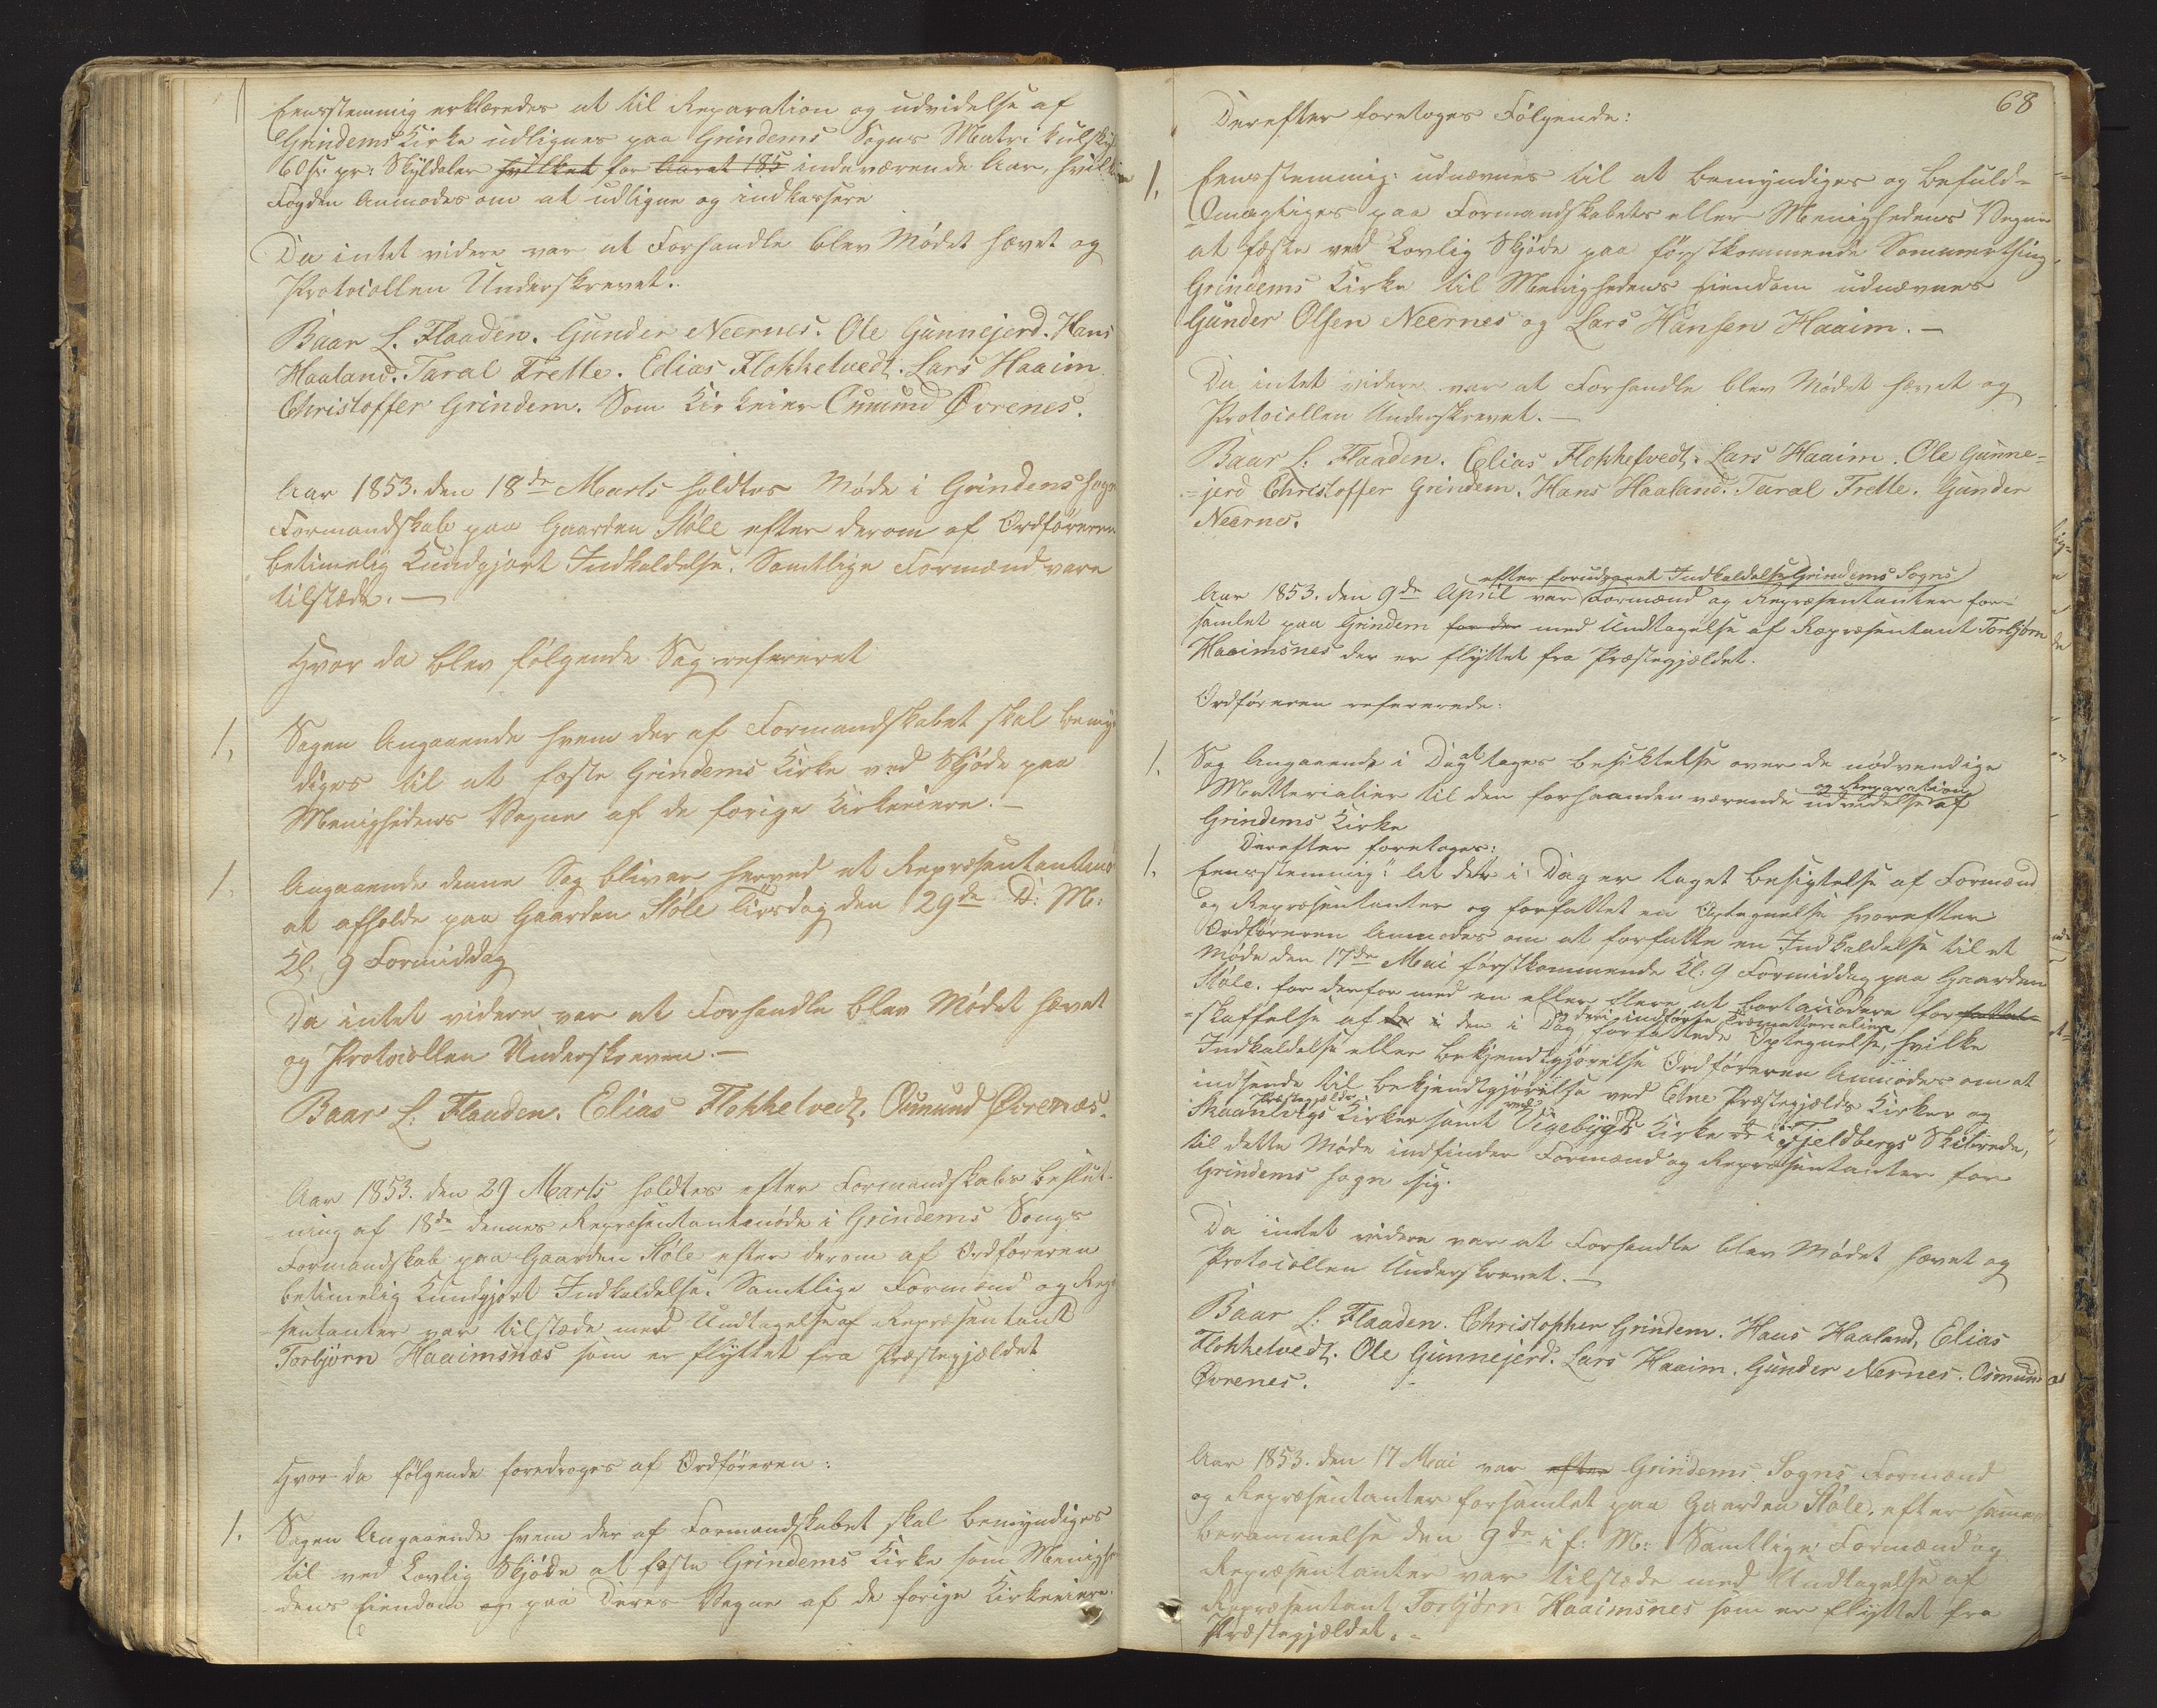 Eensstemmig erklæredes at til Reparation og udvidelse af
Grindems Kirke udlignes paa Grindems Sogns Matrikulskyld
60 s: pr: Skyldaler hvilket for Aaret 185 indeværende Aar, hvilke
Fogden Anmodes om at udligne og indkassere
Da intet videre var at Forhandle blev Mødet hævet og
Protocollen Underskrevet.
Baar L. Flaaden. Gunder Neernes. Ole Gunnejerd. Hans
Haaland. Taral Frette. Elias Flokketvedt. Lars Haaim.
Christoffer Grindem. Som Kirkeier Osmund Øvrenes.
Aar 1853. den 18de Marts holdtes Møde i Grindems Sogns
Formandskab paa Gaarden Støle efter derom af Ordføreren
betimelig Kundgjort Indkaldelse. Samtlige Formænd vare
tilstæde. —
Hvor da blev følgende Sag refereret
1, Sagen Angaaende hvem der af Formandskabet skal bemyn
diges til at fæste Grindems Kirke ved Skjøde paa
Menighedens Vegne af de forige Kirkeeiere. —
1, Angaaende denne Sag bliver herved et Repræsentantmø
at afholde paa Gaarden Støle Tirsdag den 29de D: M:
Kl: 9 Formiddag
Da intet videre var at Forhandle blev Mødet hævet
og Protocollen Underskreven. —
Baar L: Flaaden. Elias Flokketvedt. Osmund Øvrenæs.
Aar 1853. den 29 Marts holdtes efter Formandskabs beslut-
ning af 18de dennes Repræsentantmøde i Grindems Songs
Formandskab paa Gaarden Støle efter derom af Ordføreren
betimelig Kundgjort Indkaldelse. Samtlige Formænd og Repr
sentanter var tilstæde med Undtagelse af Repræsentant
Torbjørn Haaimsnæs som er flyttet fra Præstegjældet
Hvor da følgende foredroges af Ordføreren:
1. Sagen Angaaende hvem der af Formandskabet skal bemyndiges
til ved Lovlig Skjøde at fæste Grindems Kirke som Menighe
dens Eiendom og paa Deres Vegne af de forige Kirkeeiere.
68
Derefter foretoges Følgende:
1. Eensstemmig: udnævnes til at bemyndiges og befuld-
mægtiges paa Formandskabets eller Menighedens Vegne
at fæste ved Lovlig Skjøde paa førstkommende Sommerthing
Grindems Kirke til Menighedens Eiendom udnævnes
Gunder Olsen Neernes og Lars Hansen Haaim. —
Da intet videre var at Forhandle blev Mødet hævet og
Protocollen Underskrevet. —
Baar L: Flaaden. Elias Flokketvedt. Lars Haaim. Ole Gunne=
=jerd Christoffer Grindem. Hans Haaland. Taral Frette. Gunder
Neernes.
efter forudgaaet Indkaldelse Grindems Sogns
Aar 1853. den 9de April var Formænd og Repræsentanter for-
samlet paa Grindem for der med Undtagelse af Repræsentant Torbjørn
Haaimsnes der er flyttet fra Præstegjældet.
Ordføreren refererede:
1. Sag Angaaende i Dag at tages besiktelse over de nødvendige
og Reparation
Matterialier til den forhaanden værende udvidelse af
Grindems Kirke
Derefter foretoges:
1. Eensstemmig: at der i Dag er taget besigtelse af Formænd
og Repræsentanter og forfattet en Optegnelse hvorefter
Ordføreren Anmodes om at forfatte en Indkaldelse til et
Møde den 17de Mai førstkommende Kl: 9 Formiddag paa Gaarden
Støle. for derfor med en eller flere at bortaccordere for fattet
deri indførte Træmatterialier
=skaffelse af den i Dag forfattede Optegnelse, hvilke
Indkaldelse eller bekjendtgjørelse Ordføreren Anmodes om at
indsende til bekjendtgjørelse ved Etne Præstegjælds Kirker og
Præstegjælds
Skaanevigs Kirker samt ved Vigebygds Kirke i Fjeldbergs Skibrede,
til dette Møde indfinder Formænd og Repræsentanter for
Grindems Sogn sig.
Da intet videre var at Forhandle blev Mødet hævet og
Protocollen Underskrevet. —
Baar L: Flaaden. Christopher Grindem. Hans Haaland, Elias
Flokketvedt. Ole Gunnejerd. Lars Haaim. Gunder Nernes. Osmund
Øvrenes.
Aar 1853. den 17 Mai var efter Grindems Sogns Formænd
og Repræsentanter forsamlet paa Gaarden Støle. efter sammes
berammelse den 9de i f: M: Samtlige Formænd og
Repræsentanter var tilstæde med Undtagelse af
Repræsentant Torbjørn Haaimsnes som er flyttet fra
Præstegjældet. =